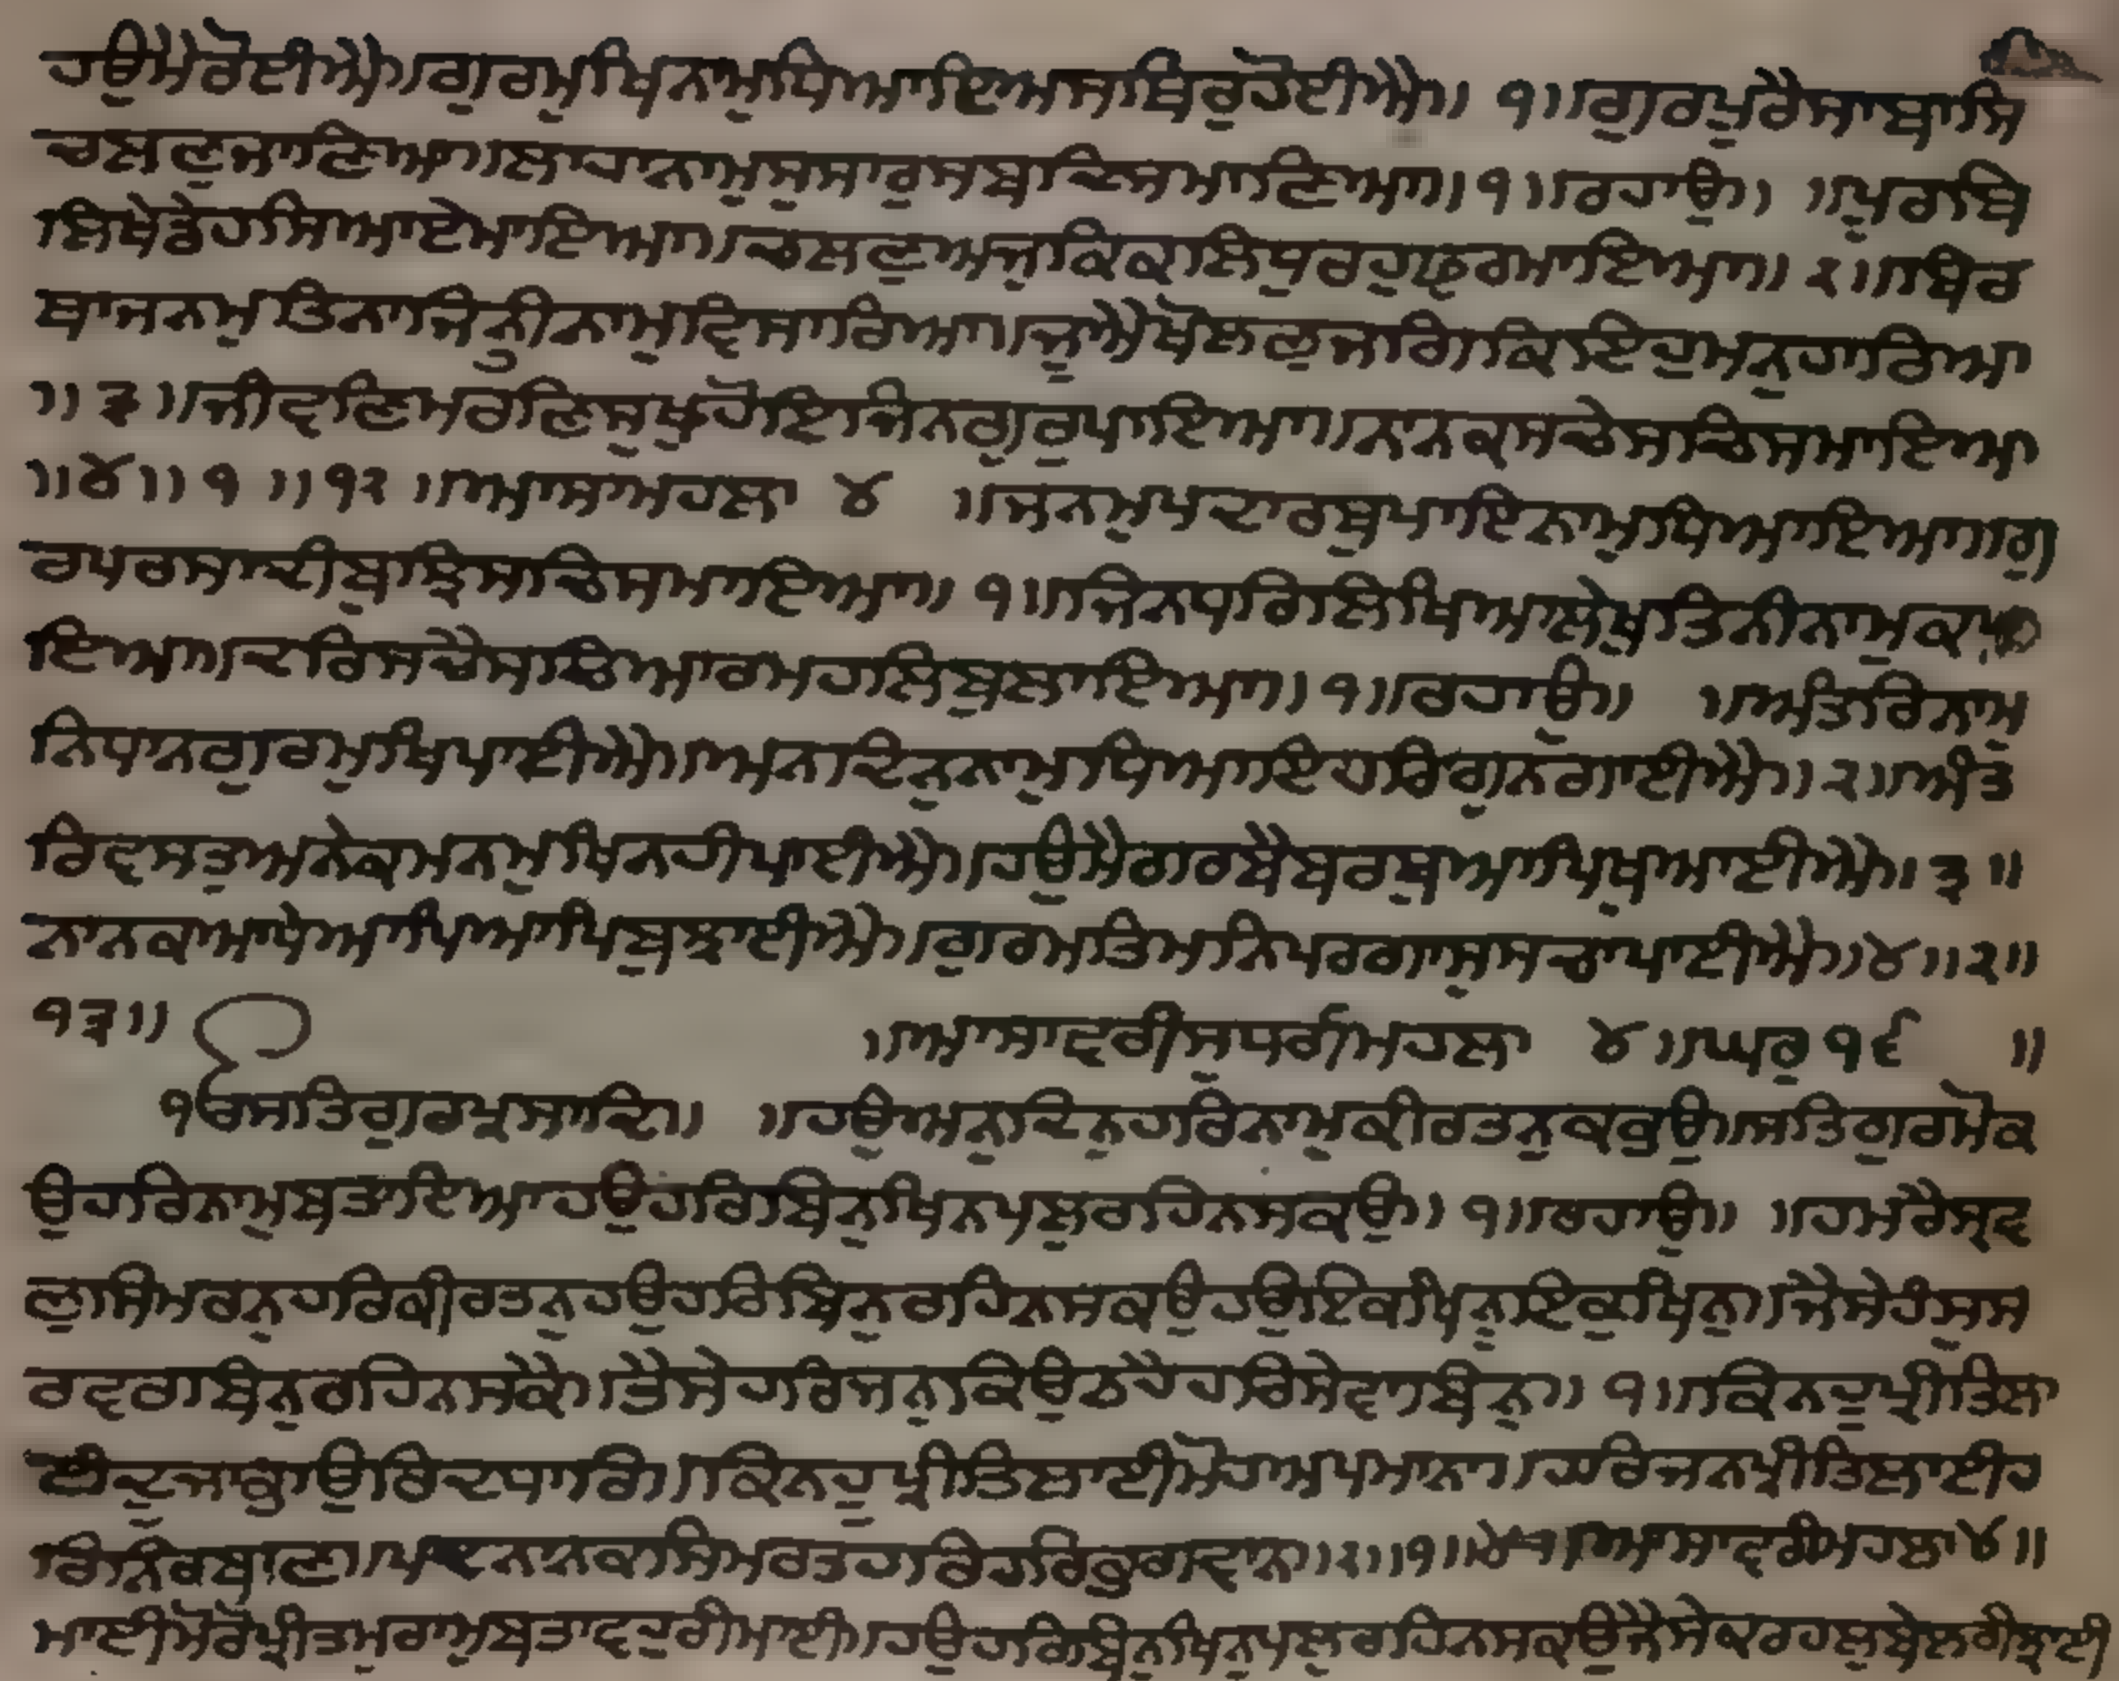 ਹਉਮੈਰੋਈਐ॥ਗੁਰਮੁਖਿਨਾਮੁਧਿਆਇਅਸਥਿਰੁਹੋਈਐ॥ ੧॥ਗੁਰਪੂਰੈਸਾਬਾਸਿ
ਚਲਣੁਜਾਣਿਆ॥ਲਾਹਾਨਾਮੁਸੁਸਾਰੁਸਬਦਿਸਮਾਣਿਆ॥੧॥ਰਹਾਉ॥ ॥ਪੂਰਬਿ
ਲਿਖੇਡੇਹਸਿਆਏਮਾਇਆ॥ਚਲਣੁਅਜੁਕਿਕਾਲਿਧੁਰਹੁਫੁਰਮਾਇਆ॥ ੨॥ਬਿਰ
ਥਾਜਨਮੁਤਿਨਾਜਿਨੀੑਨਾਮੁਵਿਸਾਰਿਆ॥ਜੂਐਖੇਲਣੁਜਗਿਕਿਇਹੁਮਨੁਹਾਰਿਆ
॥੩॥ਜੀਵਣਿਮਰਣਿਸੁਖੁਹੋਇਜਿਨਗੁਰੁਪਾਇਆ॥ਨਾਨਕਸਚੇਸਚਿਸਮਾਇਆ
॥੪॥੧॥੧੨॥ਆਸਾਮਹਲਾ ੪ ॥ਜਨਮੁਪਦਾਰਥੁਪਾਇਨਾਮੁਧਿਆਇਆ॥ਗੁ
ਰਪਰਸਾਦੀਬੁਝਿਸਚਿਸਮਾਇਆ॥ ੧॥ਜਿਨਧੁਰਿਲਿਖਿਆਲੇਖੁਤਿਨੀਨਾਮੁਕਮਾ
ਇਆ॥ਦਰਿਸਚੈਸਚਿਆਰਮਹਲਿਬੁਲਾਇਆ॥੧॥ਰਹਾਉ॥ ॥ਅੰਤਰਿਨਾਮੁ
ਨਿਧਾਨਗੁਰਮੁਖਿਪਾਈਐ॥ਅਨਦਿਨੁਨਾਮੁਧਿਆਇਹਰਿਗੁਨਗਾਈਐ॥੨॥ਅੰਤ
ਰਿਵਸਤੁਅਨੇਕਮਨਮੁਖਿਨਹੀਪਾਈਐ॥ਹਉਮੈਗਰਬੈਬਰਬੁਆਪਿਖੁਆਈਐ॥੩॥
ਨਾਨਕਆਪੇਆਪਿਆਪਿਬੁਝਾਈਐ॥ਗੁਰਮਤਿਮਨਿਪਰਗਾਸੁਸਚਾਪਾਈਐ॥੪॥੨॥
੧੩॥ ॥ਆਸਾਵਰੀਸੁਧਰੀਮਹਲਾ ੪॥ਘਰੁ੧੬ ॥
ੴਸਤਿਗੁਰਪ੍ਰਸਾਦਿ॥ ॥ਹਉਅਨਦਿਨੁਹਰਿਨਾਮੁਕੀਰਤਨੁਕਰਉ॥ਸਤਿਗੁਰਮੋਕ
ਉਹਰਿਨਾਮੁਬਤਾਇਆਹਉਹਰਿਬਿਨੁਖਿਨਪਲੁਰਹਿਨਸਕਉ॥ ੧॥ਰਹਾਉ॥ ॥ਹਮਰੈਸ੍ਰਵ
ਣੁਸਿਮਰਨੁਹਰਿਕੀਰਤਨੁਹਉਹਰਿਬਿਨੁਰਹਿਨਸਕਉਹਉਇਕੁਖਿਨੁਇਕੁਖਿਨੁ॥ਜੈਸੇਹੰਸੁਸ
ਰਵਰਬਿਨੁਰਹਿਨਸਕੈ॥ਤੈਸੇਹਰਿਜਨੁਕਿਉਰਹੈਹਰਿਸੇਵਾਬਿਨੁ॥ ੧॥ਕਿਨਹੂਪ੍ਰੀਤਿਲਾ
ਈਦੂਜਾਭਾਉਰਿਦਧਾਰਿ॥ਕਿਨਹੂਪ੍ਰੀਤਿਲਾਈਮੋਹਅਪਮਾਨ॥ਹਰਿਜਨਪ੍ਰੀਤਿਲਾਈਹ
ਰਿਨਿਰਬਾਣ॥ਪਦਨਾਨਕਸਿਮਰਤਹਰਿਹਰਿਭਗਵਾਨ॥੨॥੧॥੧੪॥ਆਸਾਵਰੀਮਹਲਾ੪॥
ਮਾਈਮੋਰੋਪ੍ਰੀਤਮੁਰਾਮੁਬਤਾਵਹੁਰੀਮਾਈ॥ਹਉਹਰਿਬਿਨੁਖਿਨੁਪਲੁਰਹਿਨਸਕਉਜੈਸੇਕਰਹਲੁਬੇਲਰੀਝਾਈ